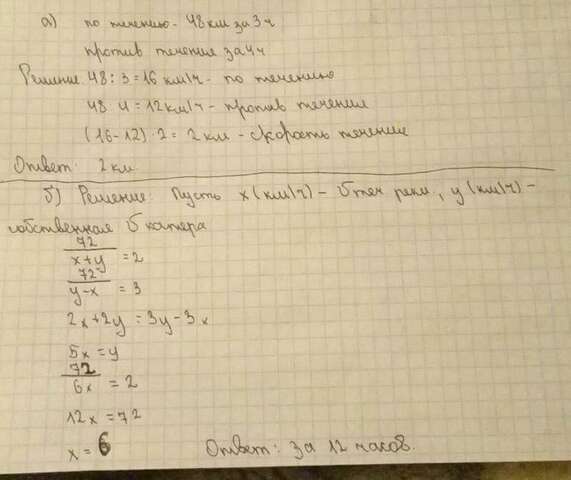 а) по течению - 48 км за 3 ч
против течения за 4 ч
Решение. 48 : 3 = 16 км/ч - по течению
48 4 = 12 км/ч - против течения
(16 - 12) : 2 = 2 км - скорость течения
Ответ: 2 км.
б) Решение: Пусть x (км/ч) - υ теч реки, y (км/ч) -
собственная υ катера
72/(x+y) = 2
72/(y-x) = 3
2x + 2y = 3y - 3x
5x = y
72/6x = 2
12x = 72
x = 6 Ответ: за 12 часов.